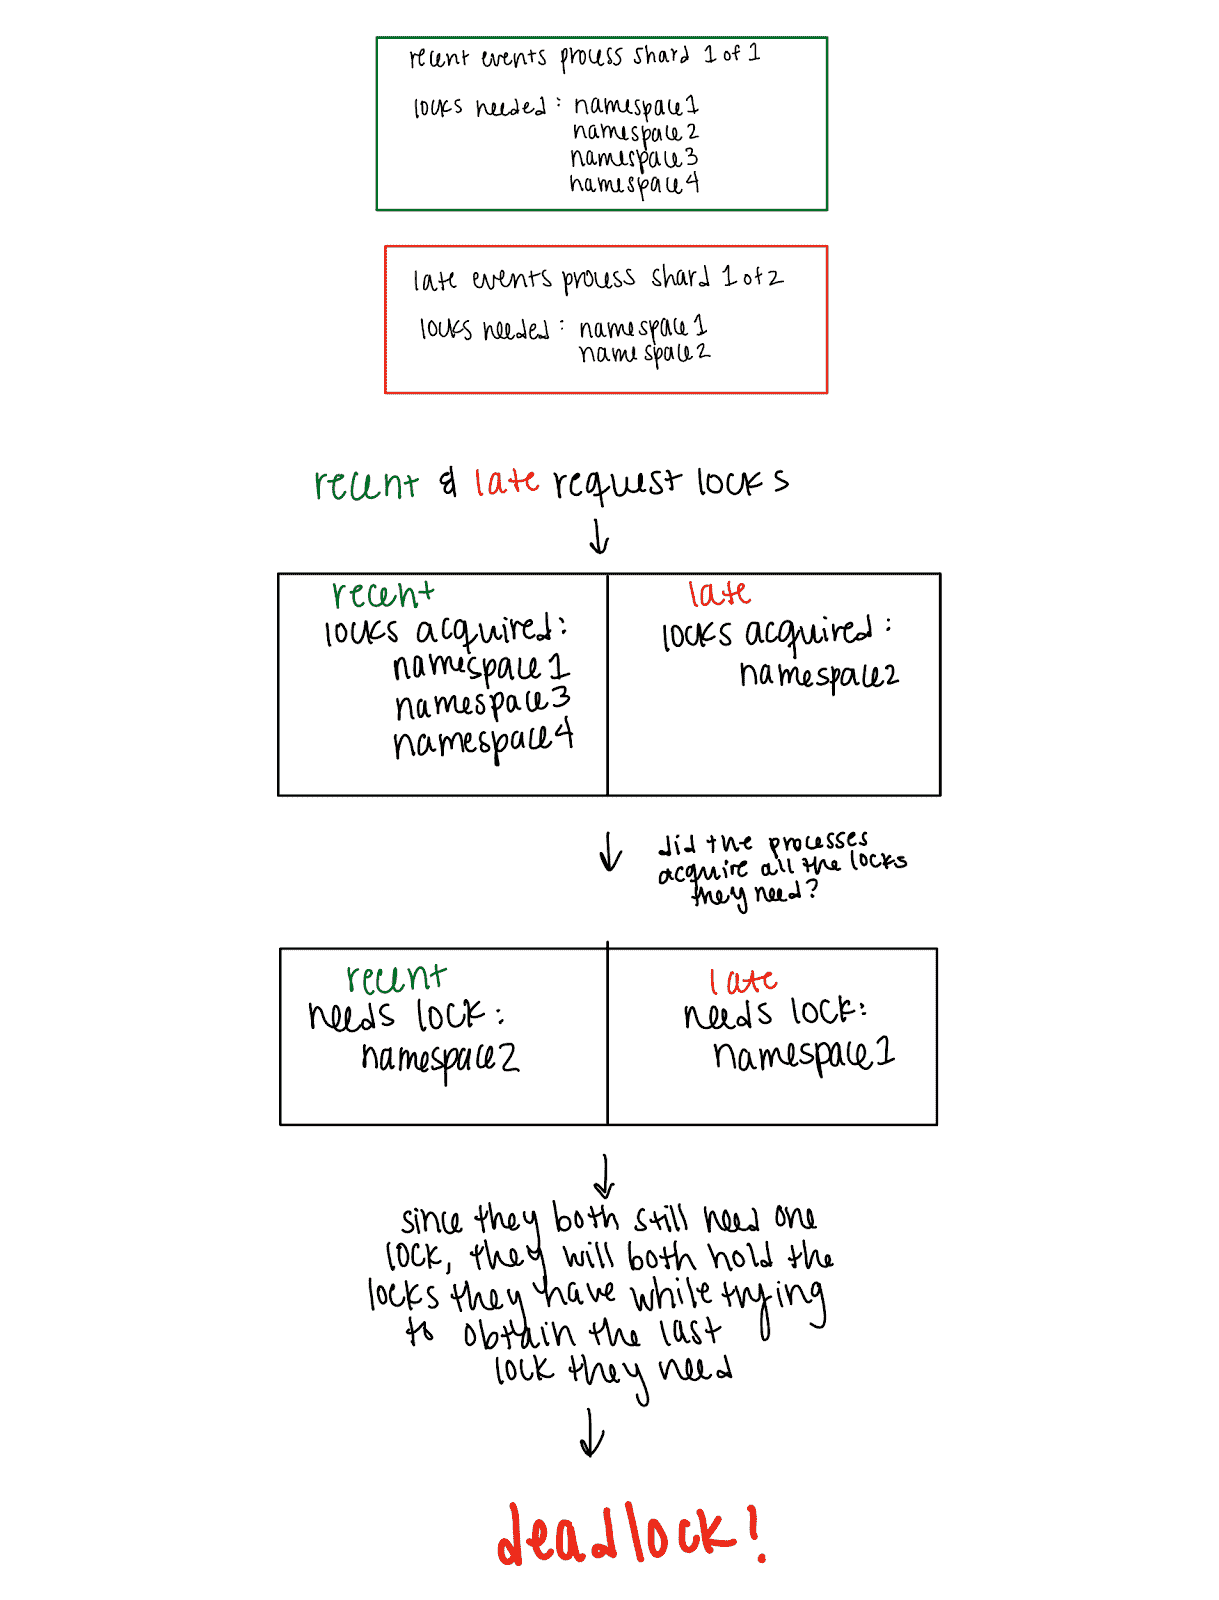 recent events process shard 1 of 1
locks needed: namespace1
namespace2
namespace3
namespace4
late events process shard 1 of 2
locks needed: namespace1
namespace2
recent & late request locks
recent
locks acquired:
namespace1
namespace3
namespace4
late
locks acquired:
namespace2
did the processes
acquire all the locks
they need?
recent
needs lock:
namespace2
late
needs lock:
namespace1
since they both still need one
lock, they will both hold the
locks they have while trying
to obtain the last
lock they need
deadlock!